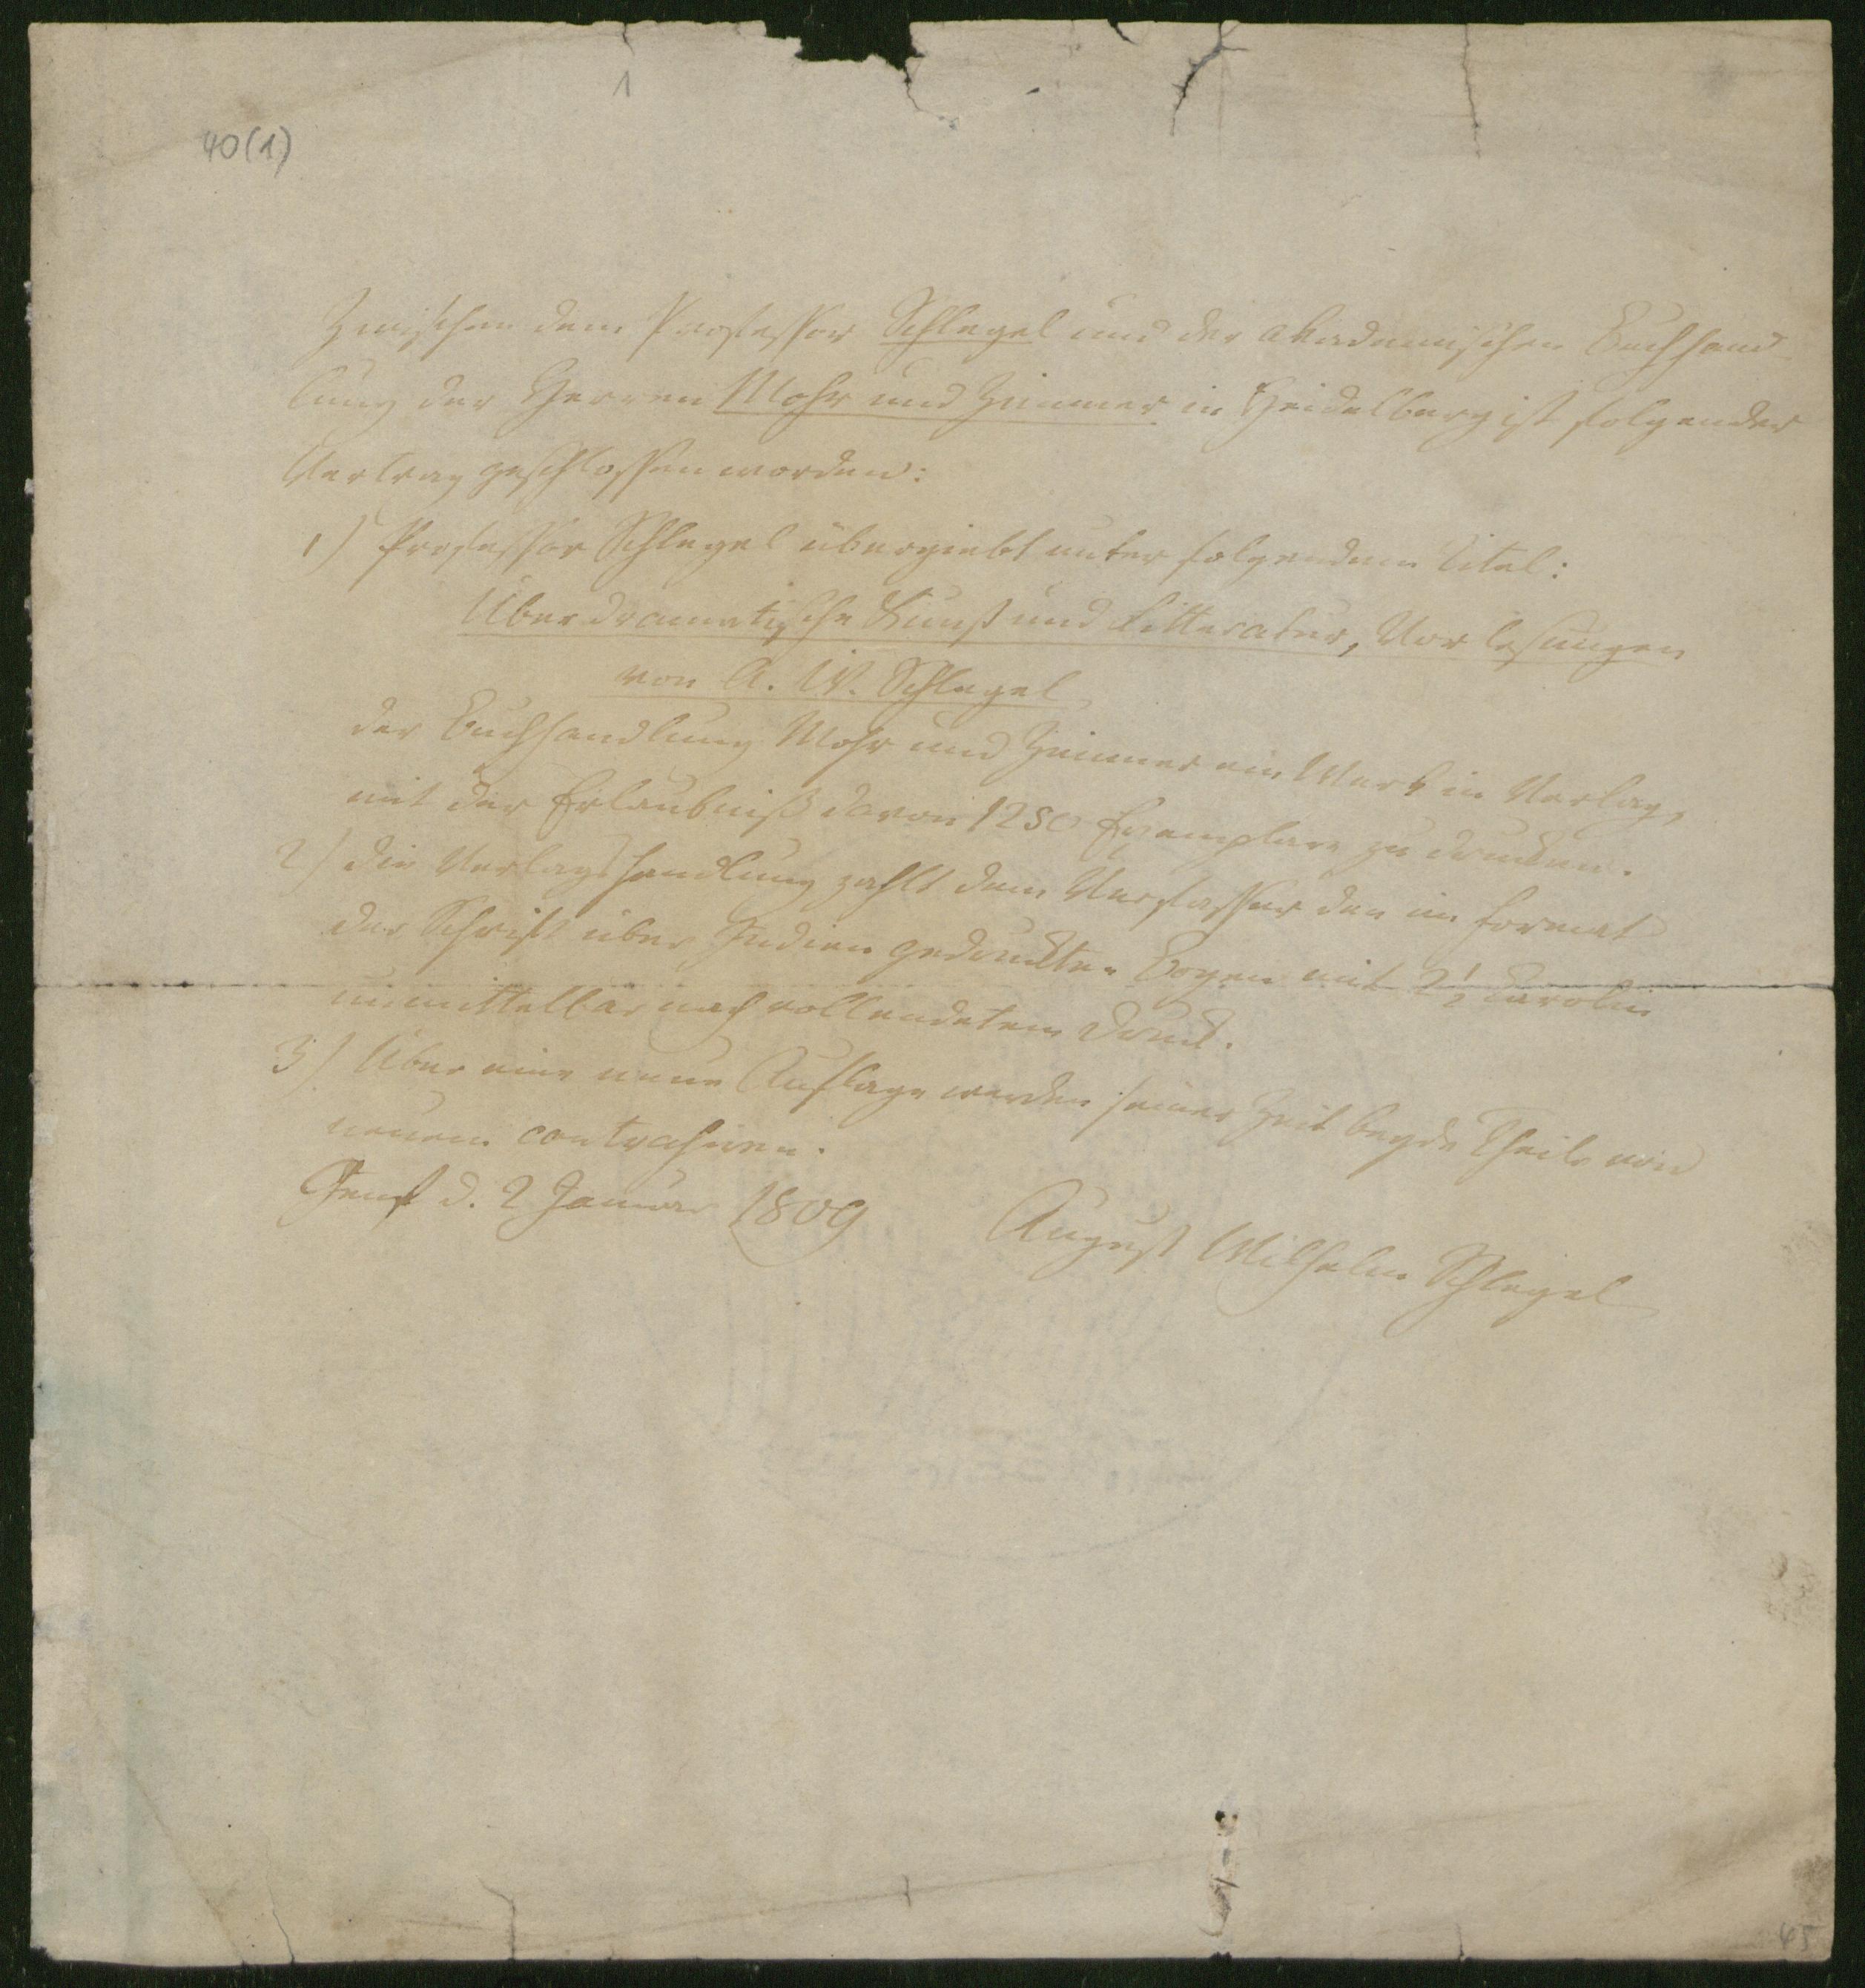 1
40(1)
Zwischen dem Professor Schlegel und der akademischen Buchhand
lung der Herren Mohr und Zimmer in Heidelberg ist folgender
Vertrag geschlossen worden:
1) Professor Schlegel übergiebt unter folgendem Titel:
Über dramatische Kunst und Litteratur, Vorlesungen
von A. W. Schlegel
der Buchhandlung Mohr und Zimmer ein Werk in Verlag,
mit der Erlaubniß davon 1250 Exemplare zu drucken.
2) die Verlagshandlung zahlt dem Verfasser den im Format
der Schrift über Indien gedruckten Bogen mit 2½ Carolin
unmittelbar nach vollendetem Druck.
3) Über eine neue Auflage werden seiner Zeit beyde Theile von
neuem contrahiren.
Genf d. 2 Januar 1809
August Wilhelm Schlegel
45